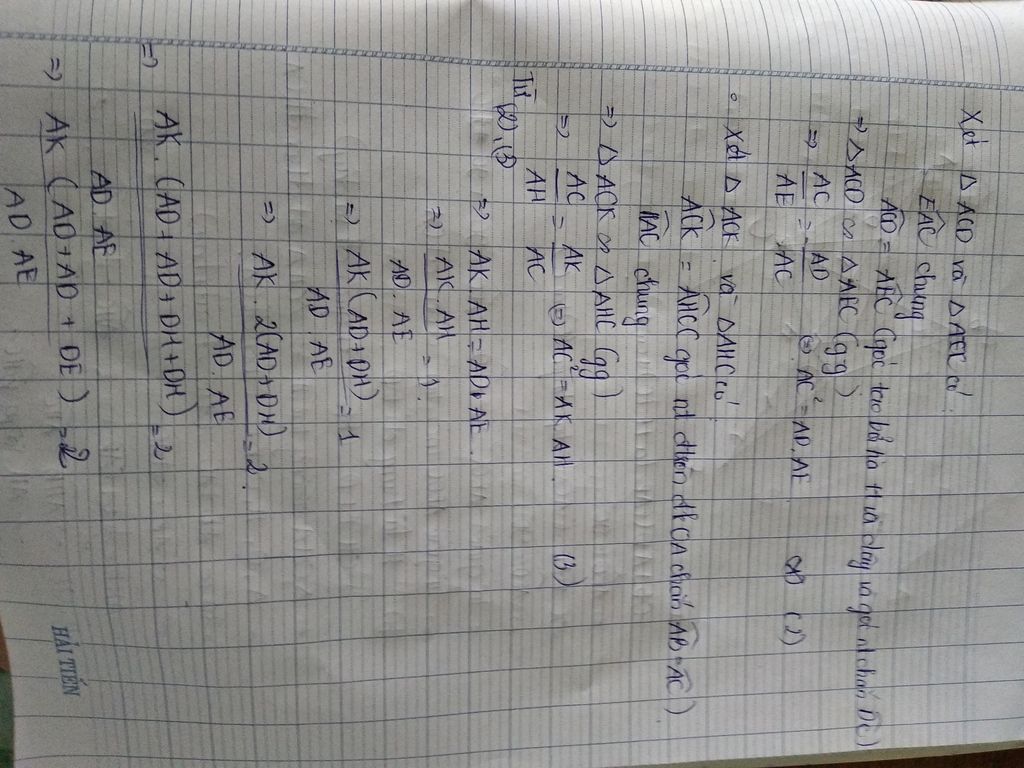 Xét △ ACD và △ AEC có:
EAC chung
ACD = AEC (góc tạo bởi tia tt và dây và góc nt chắn DC)
=> △ ACD ∽ △ AEC (gg)
=> AC/AE = AD/AC (=) AC² = AD.AE (2)
∘ Xét △ ACK và △ AHC có
ACK = AHC (góc nt chắn AB = AC)
HAC chung
=> △ ACK ∽ △ AHC (gg)
=> AC/AH = AK/AC (=) AC² = AK.AH (3)
Từ (2), (3) => AK.AH = AD.AE
=> AK.AH / AD.AE = 1
=> AK(AD+DH) / AD.AE = 1
=> AK.2(AD+DH) / AD.AE = 2
=> AK.(AD+AD+DH+DH) / AD.AE = 2
=> AK(AD+AD+DE) / AD.AE = 2
HẢI TIẾN